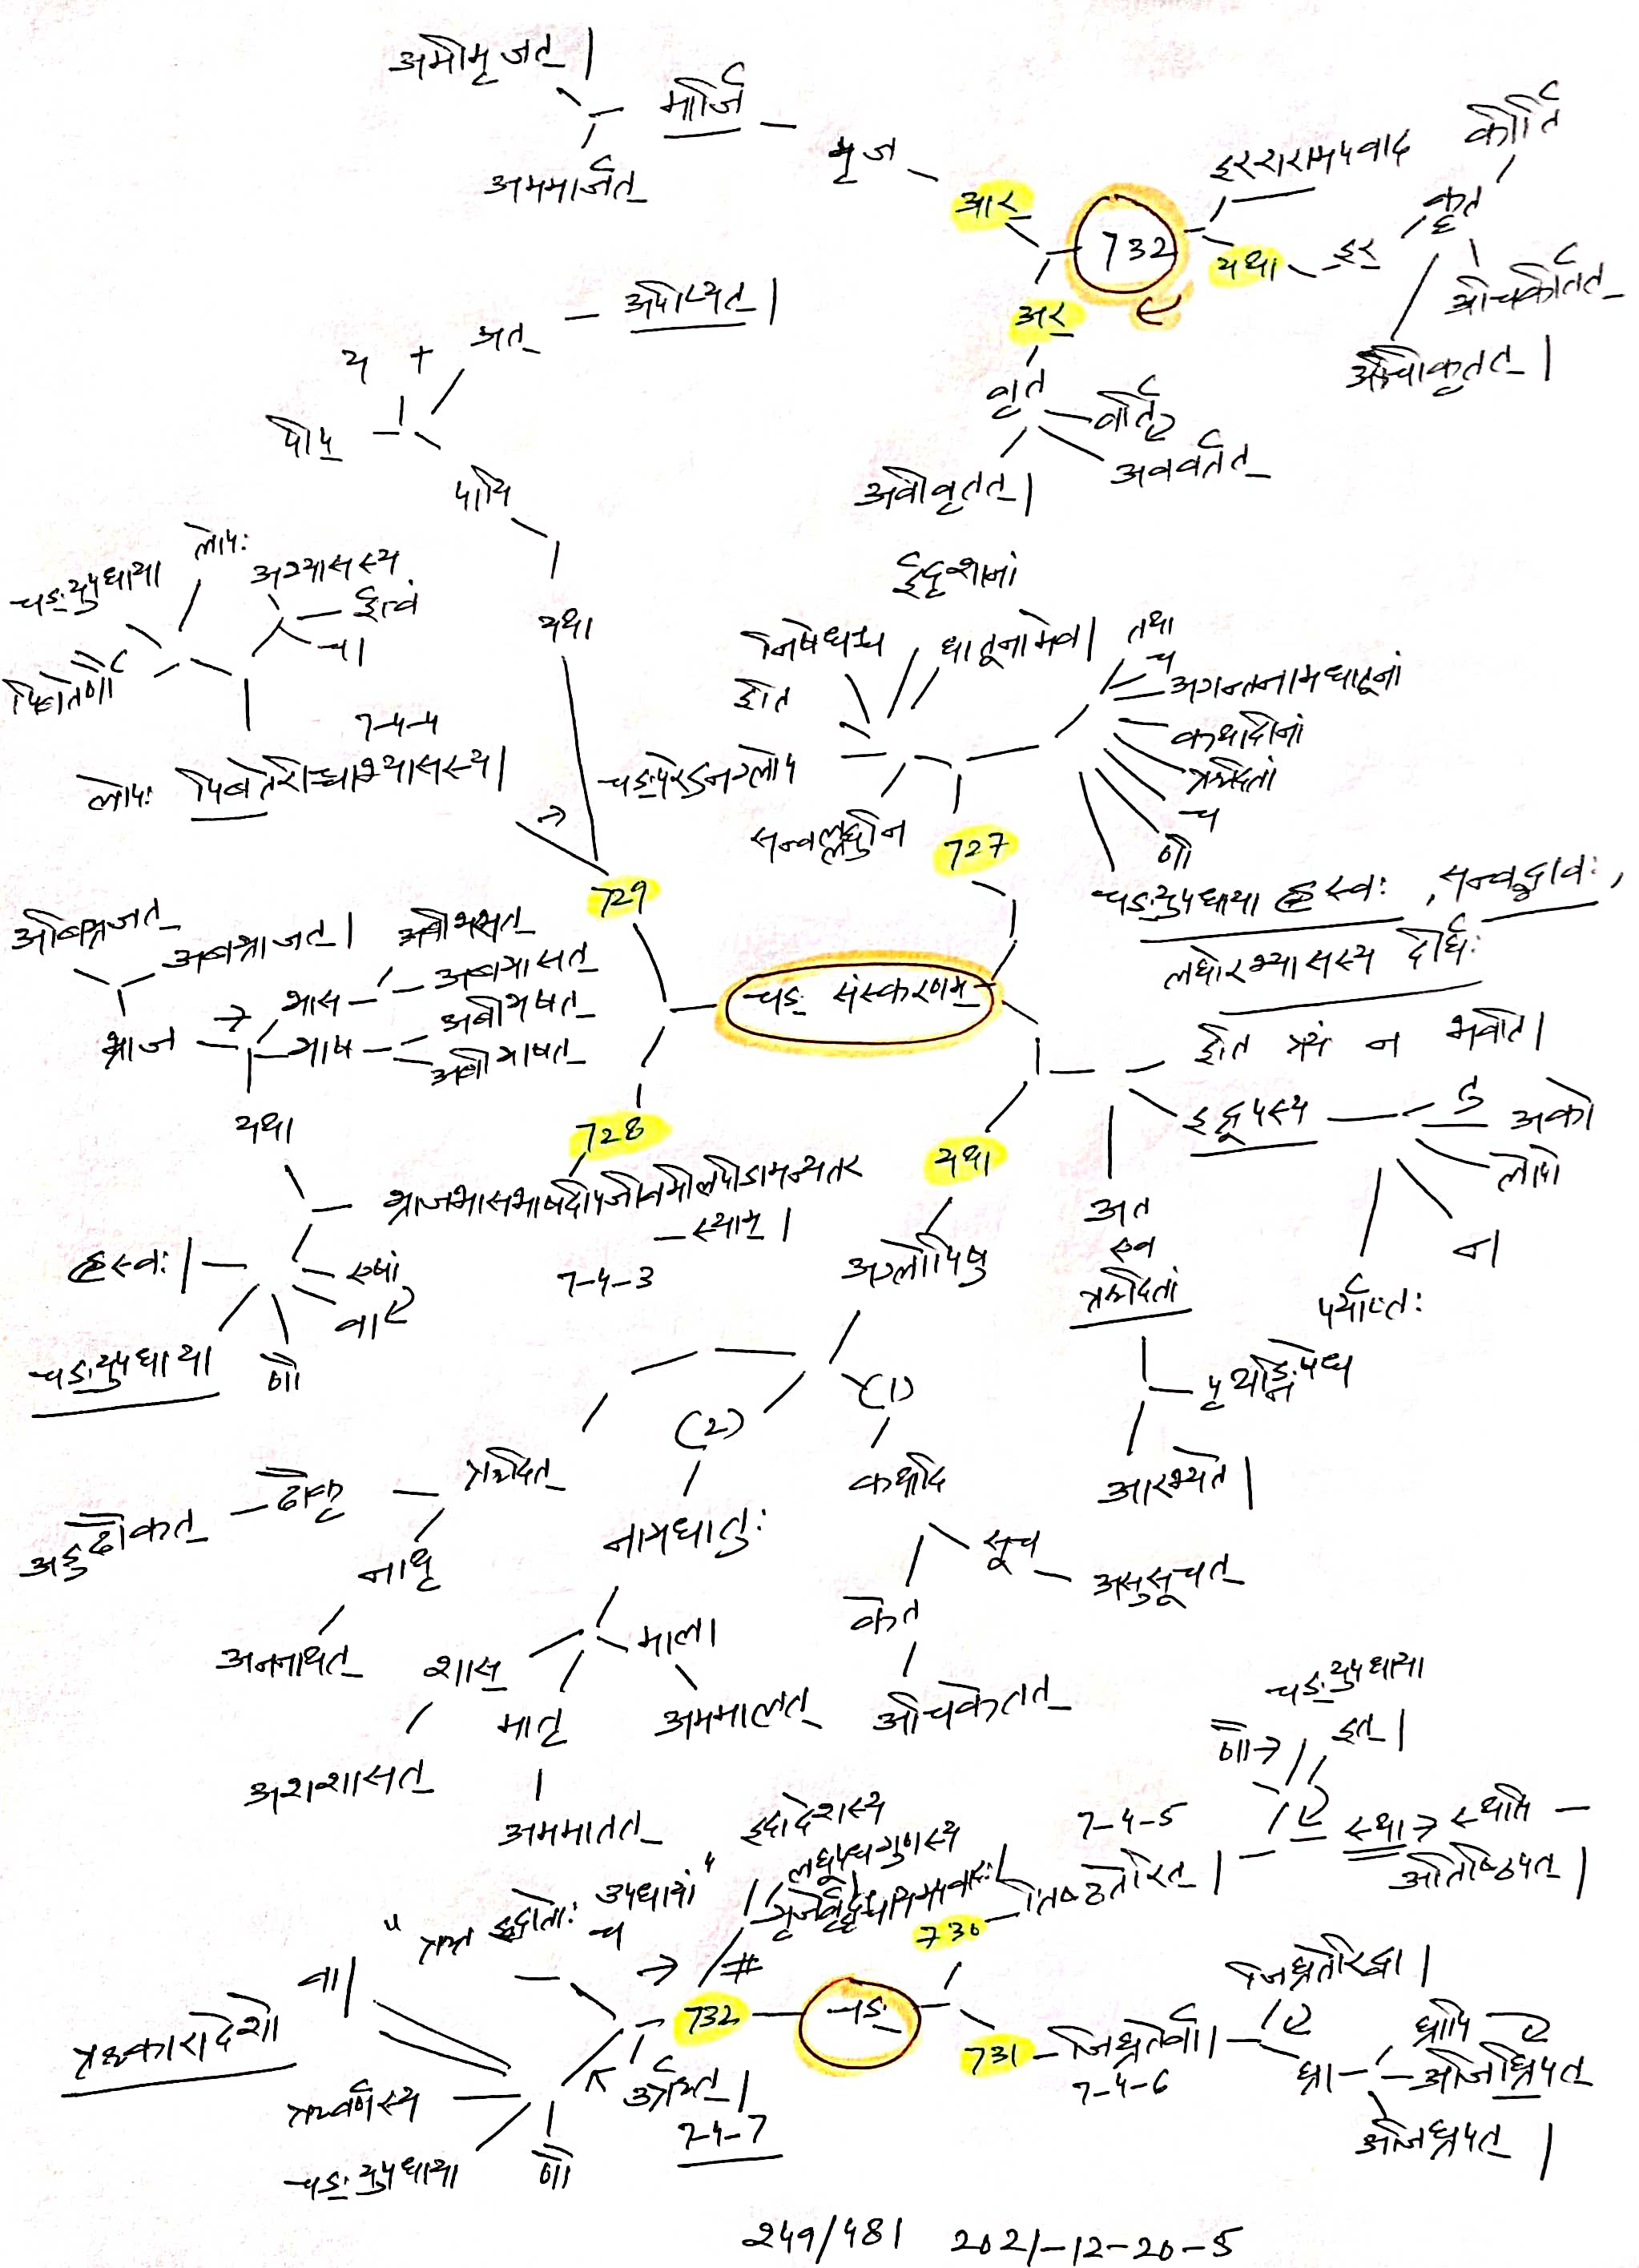 अमीमृजत् |
मार्जि
अममार्जत्
मृज
आर्
732
इररारामपवाद
यथा
इर्
कृत
कीर्ति
अचिकीर्तत्
अचीकृतत् |
अर्
वृत
वर्ति
अववर्तत्
अवीवृतत् |
य + अत् – अपीप्यत् |
पीप्
पायि
यथा
लोपः
चङ्युपधाया
अभ्यासस्य
ईत्वं
च |
पिबतेर्णौ
7-4-4
लोपः पिबतेरीच्चाभ्यासस्य |
729
ईदृशानां
निषेधश्च
धातूनामेव |
इति
चङ्परेऽनग्लोप
सन्वल्लघुनि
727
तथा
च
अगन्तनामधातूनां
कथादीनां
ऋदितां
च
णौ
चङ्युपधाया ह्रस्वः , सन्वद्भावः ,
लघोरभ्यासस्य दीर्घः
इति त्रयं न भवति |
चङ् संस्करणम्
अबिभ्रजत्
अबभ्राजत् |
भ्राज
भास
अबीभसत्
अबभासत्
भाष
अबीभषत्
अबभाषत्
यथा
728
भ्राजभासभाषदीपजीवमीलपीडामन्यतर
–स्याम् |
7-4-3
ह्रस्वः |
एषां
वा
णौ
चङ्युपधाया
यथा
अग्लोपिषु
इद्रूपस्य
अको
लोपो
न
पर्याप्तः
अत
एव
ऋदितां
पृथङ्निषेध
आरभ्यते |
(1)
कथादि
सूच
असुसूचत्
केत
अचिकेतत्
(2)
नामधातुः
माला
अममालत्
मातृ
अममातत्
शास
अशशासत्
ऋदित्
ढौकृ
अडुढौकत्
नाथृ
अननाथत्
चङ्युपधाया
णौ
इत् |
7-4-5
730
तिष्ठतेरित् |
स्था → स्थापि –
अतिष्ठिपत् |
इरादेशस्य
लघूपधगुणस्य
" ऋत इद्धातोः उपधायां "
च
732
चङ्
731
जिघ्रतेर्वा |
7-4-6
जिघ्रतेरिद्वा |
घ्रा
घ्रापि
अजिघ्रिपत्
अजिघ्रपत् |
उर्ऋत् |
7-4-7
वा |
ऋकारादेशो
ऋवर्णस्य
चङ्युपधाया
णौ
249/481 2021-12-20-5